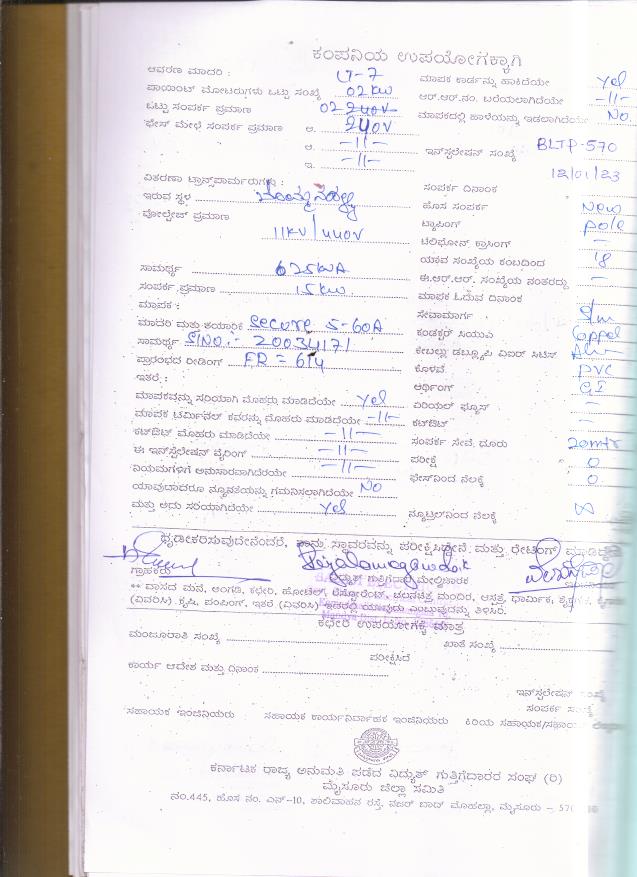 ಕಂಪನಿಯ ಉಪಯೋಗಕ್ಕಾಗಿ
ಆವರಣ ಮಾದರಿ : LT-7 ಮಾಪಕ ಕಾರ್ಡನ್ನು ಹಾಕಿದೆಯೇ Yes
ಪಾಯಿಂಟ್ ಮೋಟರುಗಳು ಒಟ್ಟು ಸಂಖ್ಯೆ 02 KW ಆರ್.ಆರ್.ನಂ. ಬರೆಯಲಾಗಿದೆಯೇ -11-
ಒಟ್ಟು ಸಂಪರ್ಕ ಪ್ರಮಾಣ 02 240V ಮಾಪಕದಲ್ಲಿ ಹಾಳೆಯನ್ನು ಇಡಲಾಗಿದೆಯೇ No.
ಫೇಸ್ ಮೇಲೆ ಸಂಪರ್ಕ ಪ್ರಮಾಣ ಅ. 240V
ಆ. -11- ಇನ್‌ಸ್ಟಲೇಷನ್ ಸಂಖ್ಯೆ BLTP-570
ಇ. -11- 12/01/23
ವಿತರಣಾ ಟ್ರಾನ್ಸ್‌ಪಾರ್ಮರುಗಳು : ಸಂಪರ್ಕ ದಿನಾಂಕ
ಇರುವ ಸ್ಥಳ ಹೊಸ ಸಂಪರ್ಕ New
ವೋಲ್ಟೇಜ್ ಪ್ರಮಾಣ 11KV/440V ಟ್ಯಾಪಿಂಗ್ pole
ಟೆಲಿಫೋನ್ ಕ್ರಾಸಿಂಗ್ -
ಯಾವ ಸಂಖ್ಯೆಯ ಕಂಬದಿಂದ 18
ಸಾಮರ್ಥ್ಯ 625KVA ಈ.ಆರ್.ಆರ್. ಸಂಖ್ಯೆಯ ನಂತರದ್ದು -
ಸಂಪರ್ಕ ಪ್ರಮಾಣ 15KW ಮಾಪಕ ಓದುವ ದಿನಾಂಕ
ಮಾಪಕ : ಸೇವಾಮಾರ್ಗ
ಮಾದರಿ ಮತ್ತು ತಯಾರಿಕೆ Secure 5-60A ಕಂಡಕ್ಟರ್ ಸಿಯುಪಿ
ಸಾಮರ್ಥ್ಯ S/NO:- 20034171 ಕೇಬಲ್ಲು ಡಬ್ಲ್ಯೂಪಿ ಏಐರ್ ಸಿಟಿಸ್
ಪ್ರಾರಂಭದ ರೀಡಿಂಗ್ FR = 614 ಕೊಳವೆ PVC
ಇತರೆ : ಅರ್ಥಿಂಗ್ GI
ಮಾಪಕವನ್ನು ಸರಿಯಾಗಿ ಮೊಹರು ಮಾಡಿದೆಯೇ Yes ಏರಿಯಲ್ ಫ್ಯೂಸ್ -
ಮಾಪಕ ಟರ್ಮಿನಲ್ ಕವರನ್ನು ಮೊಹರು ಮಾಡಿದೆಯೇ -11- ಕಟ್‌ಔಟ್ -
ಕಟ್‌ಔಟ್ ಮೊಹರು ಮಾಡಿದೆಯೇ -11- ಸಂಪರ್ಕ ಸೇವೆ ದೂರು 20mtr
ಈ ಇನ್‌ಸ್ಟೆಲೇಷನ್ ವೈರಿಂಗ್ -11- ಪರೀಕ್ಷೆ 0
ನಿಯಮಗಳಿಗೆ ಅನುಸಾರವಾಗಿದೆಯೇ -11- ಫೇಸ್‌ನಿಂದ ನೆಲಕ್ಕೆ 0
ಯಾವುದಾದರೂ ನ್ಯೂನತೆಯನ್ನು ಗಮನಿಸಲಾಗಿದೆಯೇ No
ಮತ್ತು ಅದು ಸರಿಯಾಗಿದೆಯೇ Yes ನ್ಯೂಟ್ರಲ್‌ನಿಂದ ನೆಲಕ್ಕೆ ∞
ಧೃಡೀಕರಿಸುವುದೇನೆಂದರೆ, ನಾನು ಸ್ಥಾವರವನ್ನು ಪರೀಕ್ಷಿಸಿದ್ದೇನೆ ಮತ್ತು ರೇಟಿಂಗ್
ಗ್ರಾಹಕರು ವಿದ್ಯುತ್ ಗುತ್ತಿಗೆದಾರ ಮೇಲ್ವಿಚಾರಕ
** ವಾಸದ ಮನೆ, ಅಂಗಡಿ, ಕಛೇರಿ, ಹೋಟೆಲ್, ರೆಸ್ಟೋರೆಂಟ್, ಚಲನಚಿತ್ರ ಮಂದಿರ, ಆಸ್ಪತ್ರೆ, ಧಾರ್ಮಿಕ,
(ವಿವರಿಸಿ) ಕೃಷಿ, ಪಂಪಿಂಗ್, ಇತರೆ (ವಿವರಿಸಿ) ಇದರಲ್ಲಿ ಯಾವುದು ಎಂಬುವುದನ್ನು ತಿಳಿಸಿರಿ.
ಕಛೇರಿ ಉಪಯೋಗಕ್ಕೆ ಮಾತ್ರ
ಮಂಜೂರಾತಿ ಸಂಖ್ಯೆ ಖಾತೆ ಸಂಖ್ಯೆ
ಪರೀಕ್ಷಿಸಿದೆ
ಕಾರ್ಯ ಆದೇಶ ಮತ್ತು ದಿನಾಂಕ
ಇನ್‌ಸ್ಟಲೇಷನ್ ಸಂಖ್ಯೆ
ಸಂಪರ್ಕ ಸಂಖ್ಯೆ
ಸಹಾಯಕ ಇಂಜಿನಿಯರು ಸಹಾಯಕ ಕಾರ್ಯನಿರ್ವಾಹಕ ಇಂಜಿನಿಯರು ಕಿರಿಯ ಸಹಾಯಕ/ಸಹಾಯ
ಕರ್ನಾಟಕ ರಾಜ್ಯ ಅನುಮತಿ ಪಡೆದ ವಿದ್ಯುತ್ ಗುತ್ತಿಗೆದಾರರ ಸಂಘ (ರಿ)
ಮೈಸೂರು ಜಿಲ್ಲಾ ಸಮಿತಿ
ನಂ.445, ಹೊಸ ನಂ. ಎನ್-10, ಶಾಲಿವಾಹನ ರಸ್ತೆ, ನಜರ್ ಬಾದ್ ಮೊಹಲ್ಲಾ, ಮೈಸೂರು - 570 010